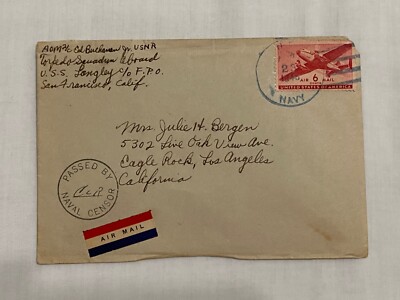 Ed Buchanan Jr. USNR
Torpedo Squadron Aboard
U.S.S. Langley c/o F.P.O.
San Francisco, Calif.
NAVY
AIR 6 MAIL
CENTS
UNITED STATES OF AMERICA
Mrs. Julie H. Bergen
5302 Live Oak View Ave.
Eagle Rock, Los Angeles
California
PASSED BY
NAVAL CENSOR
AIR MAIL